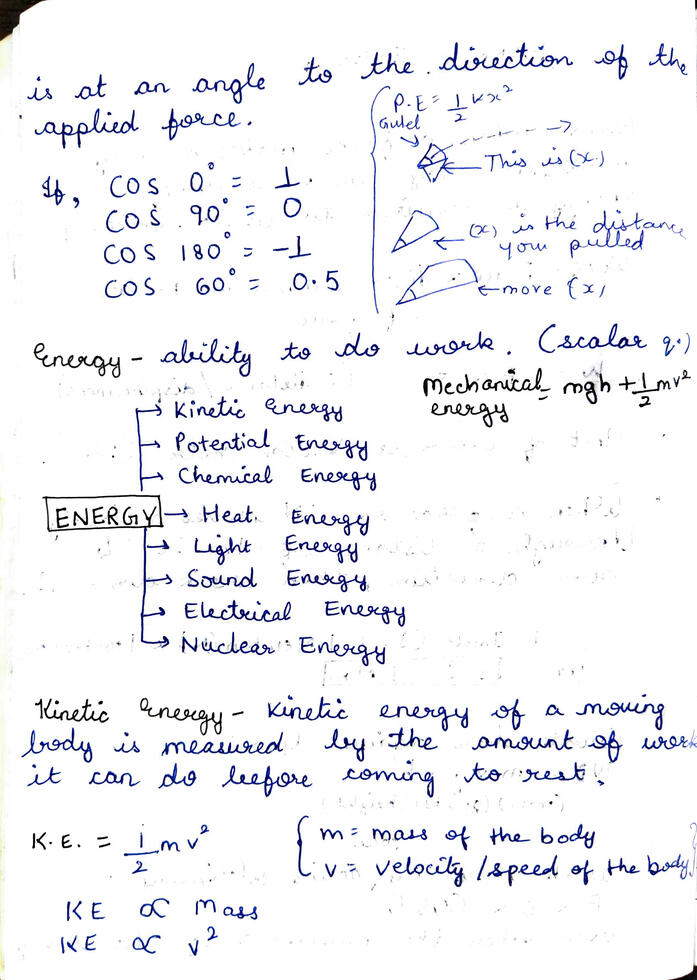 is at an angle to the direction of the
applied force.
P.E = 1/2 kx²
Gulel
This is (x)
(x) is the distance
you pulled
more (x)
If, COS 0° = 1.
COS 90° = 0
COS 180° = -1
COS 60° = 0.5
Energy - ability to do work. (scalar q.)
Mechanical = mgh + 1/2 mv²
energy
→ Kinetic Energy
→ Potential Energy
→ Chemical Energy
ENERGY → Heat Energy
→ Light Energy
→ Sound Energy
→ Electrical Energy
→ Nuclear Energy
Kinetic Energy - Kinetic energy of a moving
body is measured by the amount of work
it can do before coming to rest.
K.E. = 1/2 mv² { m = mass of the body
v = velocity / speed of the body }
KE ∝ Mass
KE ∝ v²